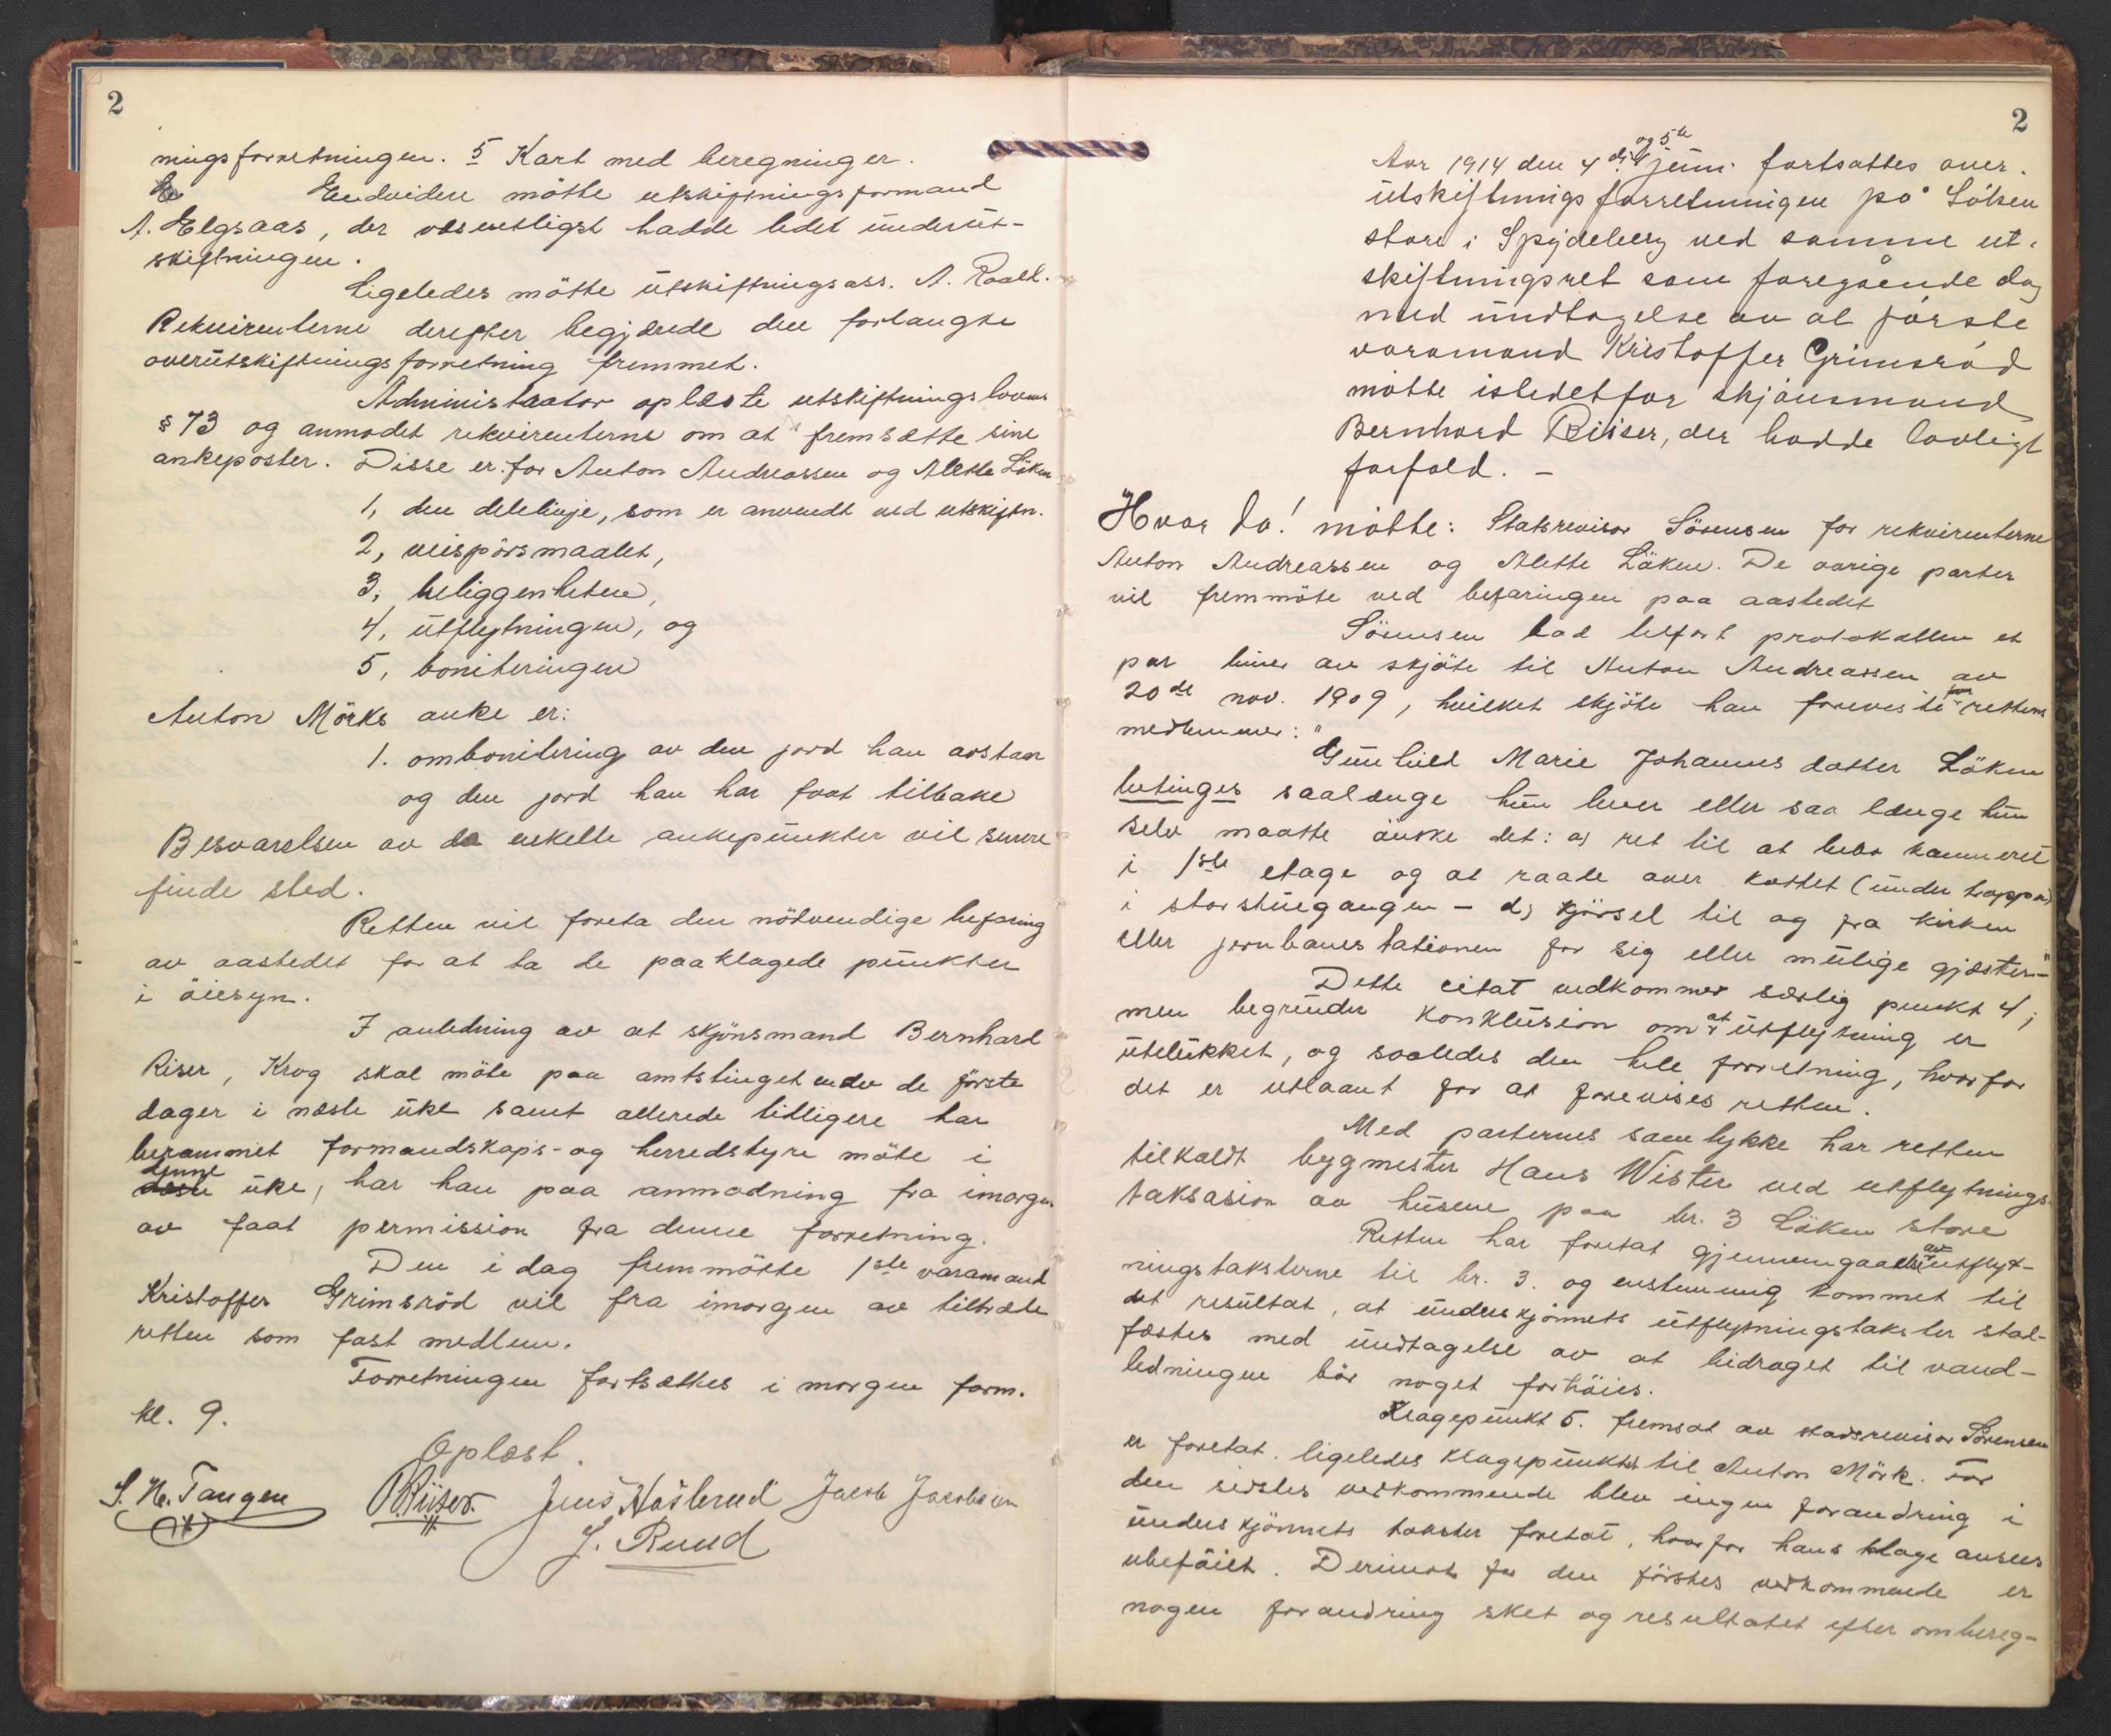 2
ningsforretningen. 5 Kart med beregninger.
Endvidere mötte utskiftningsformand
A. Elgsaas, der væsentligst hadde ledet underut-
skiftningen.
Ligeledes mötte utskiftningsass. A. Raael.
Rekvirenterne derefter begjærede den forlangte
overutskiftningsforretning fremmet.
Administrator oplæste utskiftningslovens
§ 73 og anmodet rekvirenterne om at fremsætte sine
ankeposter. Disse er for Anton Andreassen og Alette Löken
1, den delelinje, som er anvendt ved utskiftn.
2, veispörsmaalet,
3, beliggenheten,
4, utflytningen, og
5, boniteringen
Anton Mörks anke er:
1. ombonitering av den jord han avstaar
og den jord han har faat tilbake
Besvarelsen av de enkelte ankepunkter vil senere
finde sted.
Retten vil foreta den nödvendige befaring
av aastedet for at ta de paaklagede punkter
i öiesyn.
I anledning av at skjönsmand Bernhard
Riser, Krog skal möte paa amtstinget under de förste
dager i næste uke samt allerede tidligere har
berammet formandskaps- og herredstyre möte i
denne uke, har han paa anmodning fra imorgen
av faat permission fra denne forretning.
Den i dag fremmötte 1ste varamand
Kristoffer Grimsröd vil fra imorgen av tiltræde
retten som fast medlem.
Forretningen fortsættes i morgen form.
kl. 9.
Oplæst.
S. H. Tangen B Riiser Jens Haslerud Jacob Jacobsen
J. Ruud
2
Aar 1914 den 4de og 5te juni fortsattes over-
utskiftningsforretningen på Löken
store i Spydeberg ved samme ut-
skiftningsret som foregående dag
med undtagelse av at förste
varamand Kristoffer Grimsröd
mötte istedetfor skjönsmand
Bernhard Riiser, der hadde lovligt
forfald. -
Hvor da! mötte: Statsrevisor Sörensen for rekvirenterne
Anton Andreassen og Alette Löken. De övrige parter
vil fremmöte ved befaringen paa aastedet
Sörensen bad tilfört protokollen et
par linier av skjöte til Anton Andreassen av
20de nov. 1909, hvilket skjöte han foreviste for rettens
medlemmer: "
Gunhild Marie Johannes datter Löken
betinges saalænge hun lever eller saa længe hun
selv maatte önske det: a) ret til at bebo kammeret
i 1ste etage og at raade over kottet (under trappen)
i storstuegangen - d) kjörsel til og fra kirken
eller jernbanestationen for sig eller mulige gjæster-"
Dette citat vedkommer særlig punkt 4;
men begrunder konklusion om at utflytning er
utelukket, og saaledes den hele forretning, hvorfor
det er utlaant for at forevises retten.
Med parternes samtykke har retten
tilkaldt bygmester Hans Wister ved utflytnings-
taksasion av husene paa br. 3 Löken store
Retten har foretat gjennemgaaelse av utflyt-
ningstaksterne til br. 3. og enstemmig kommet til
det resultat, at underskjönnets utflytningstakster stad-
fæstes med undtagelse av at bidraget til vand-
ledningen bör noget forhöies.
Klagepunkt 5. fremsat av statsrevisor Sörensen
er foretat. ligeledes klagepunktet til Anton Mörk. For
den sidstes vedkommende blev ingen forandring i
underskjönnets takster foretat, hvorfor hans klage ansees
ubeföiet. Derimot for den förstes vedkommende er
nogen forandring sket og resultatet efter ombereg-